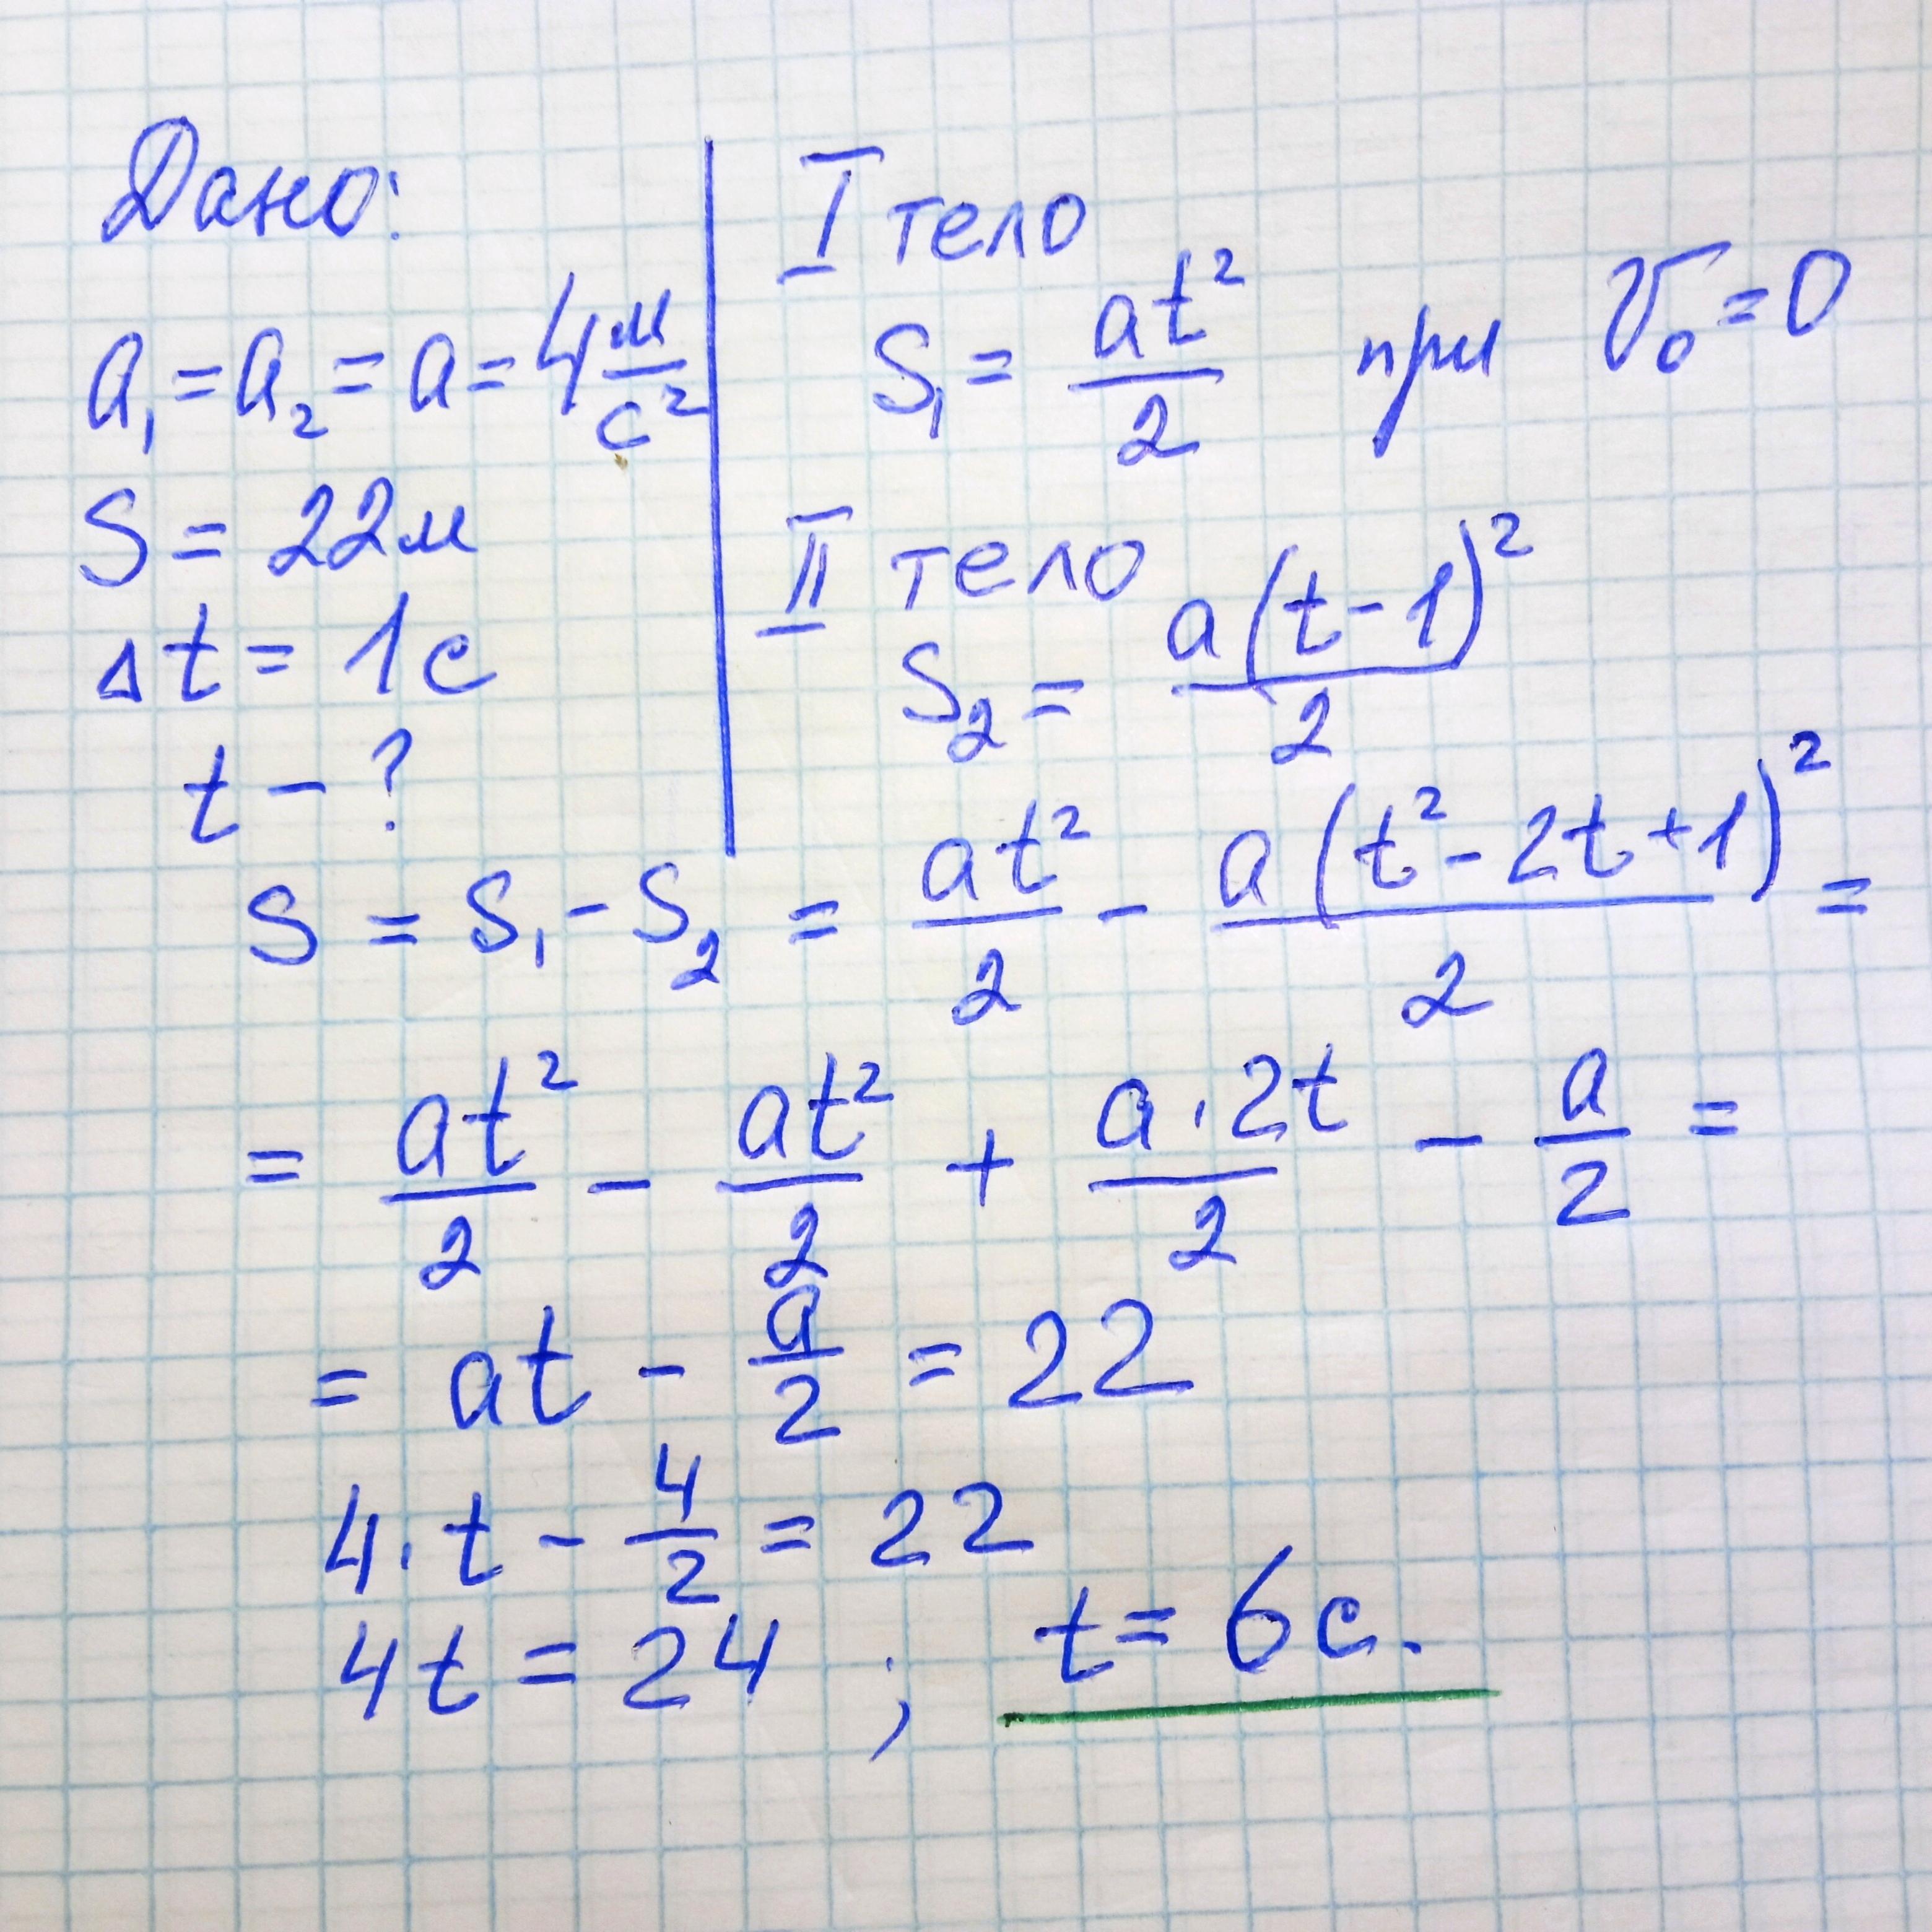 Дано:
a₁ = a₂ = a = 4 м/с²
S = 22м
Δt = 1с
t - ?
I тело
S₁ = at²/2 при V₀ = 0
II тело
S₂ = a(t-1)²/2
S = S₁ - S₂ = at²/2 - a(t²-2t+1)²/2 =
= at²/2 - at²/2 + a·2t/2 - a/2 =
= at - a/2 = 22
4·t - 4/2 = 22
4t = 24 ; t = 6с.